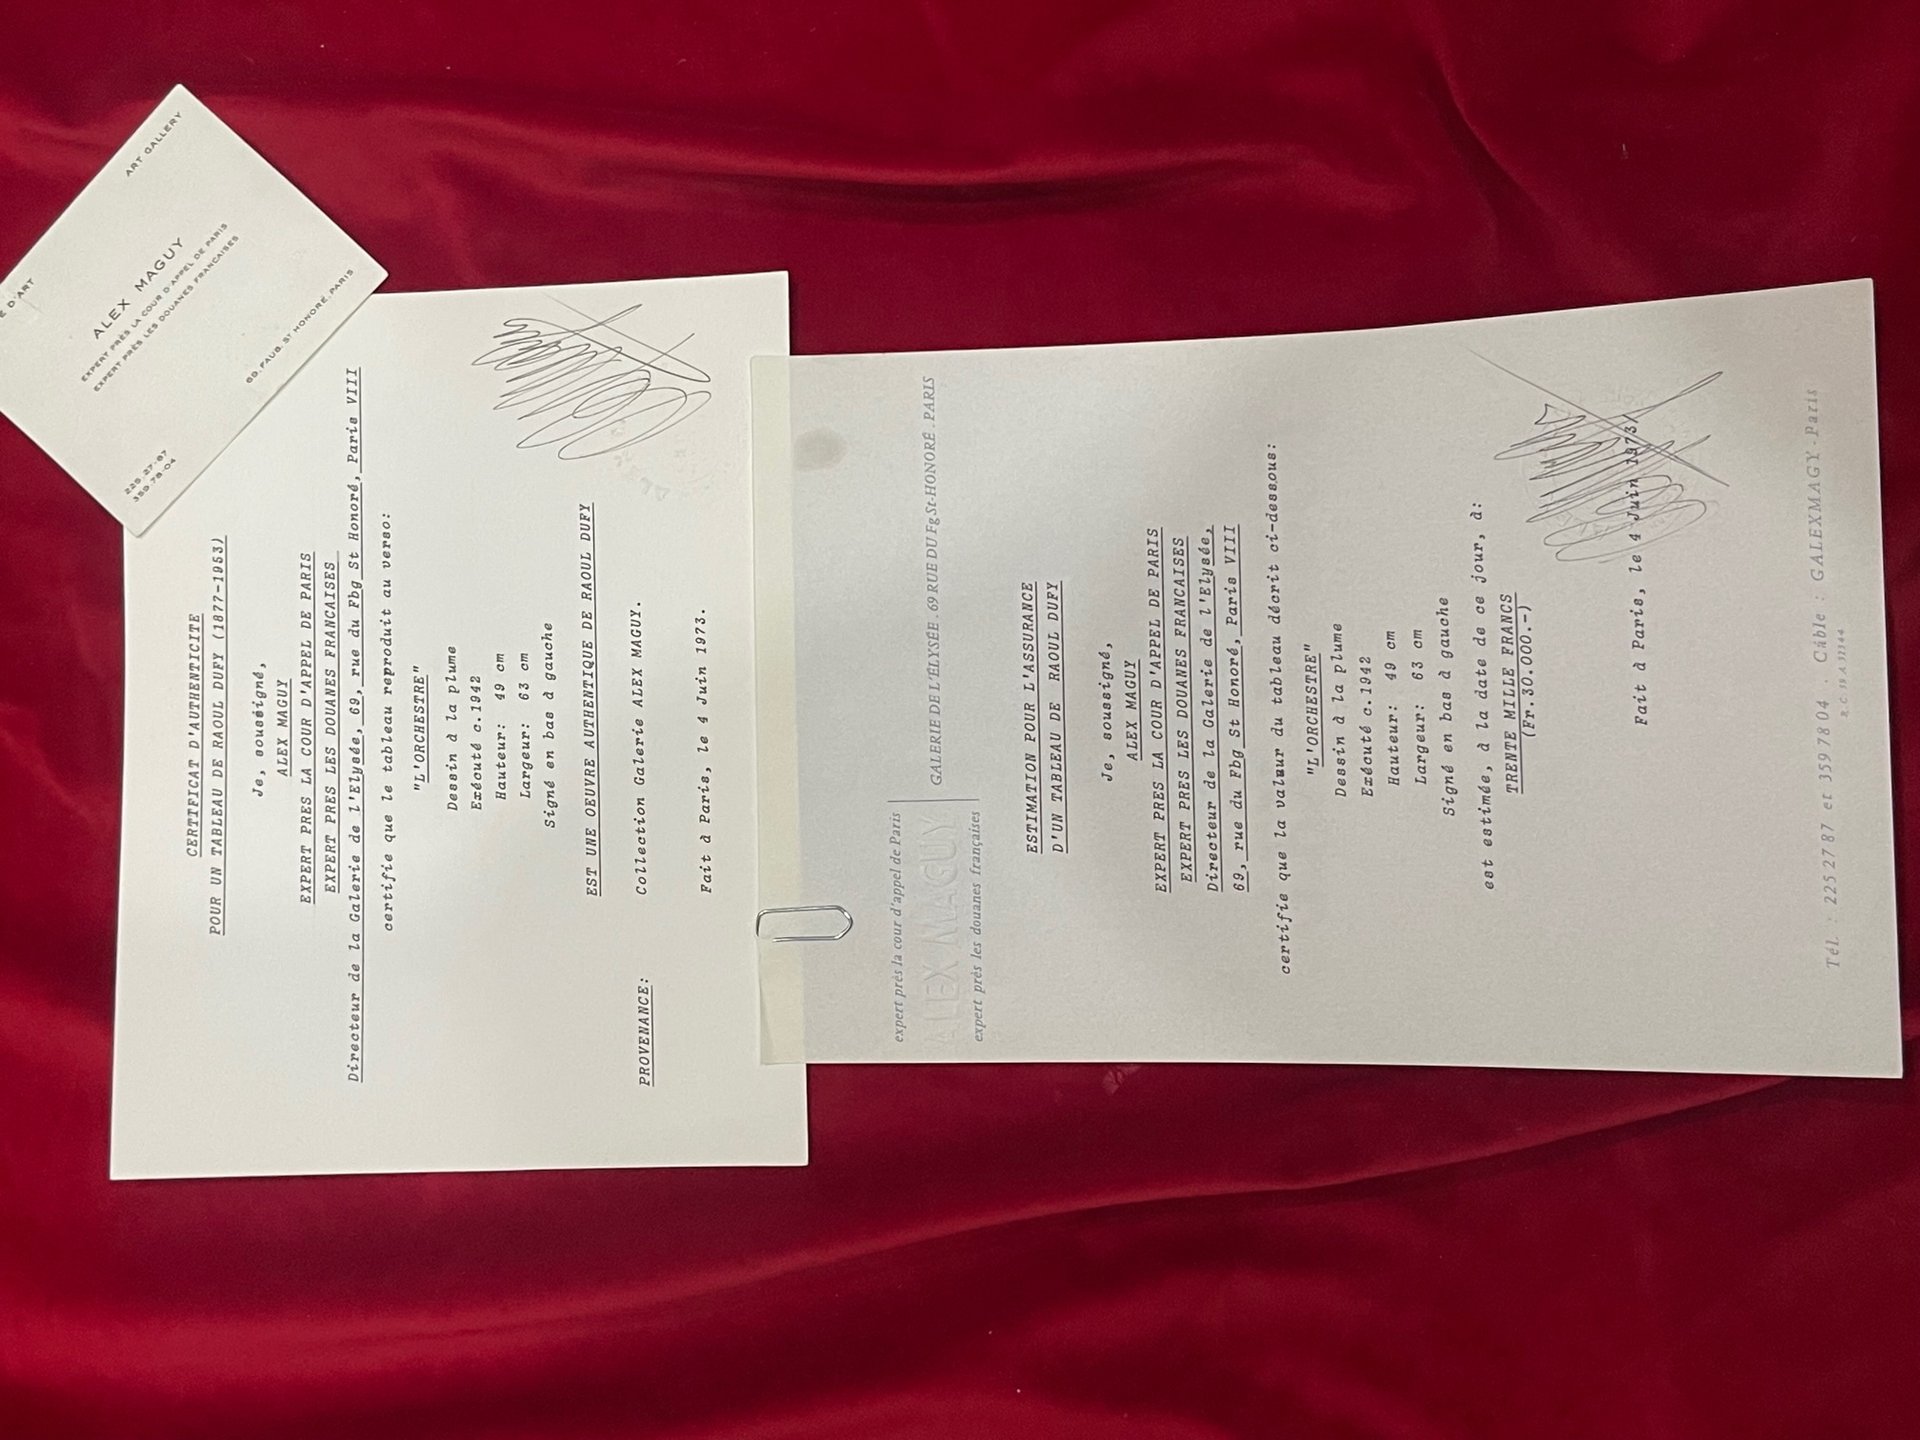 D'ART
ART GALLERY
ALEX MAGUY
EXPERT PRÈS LA COUR D'APPEL DE PARIS
EXPERT PRÈS LES DOUANES FRANCAISES
225.27-87
359.78-04
69, FAUB. ST HONORÉ, PARIS
CERTIFICAT D'AUTHENTICITE
POUR UN TABLEAU DE RAOUL DUFY (1877-1953)
Je, soussigné,
ALEX MAGUY
EXPERT PRES LA COUR D'APPEL DE PARIS
EXPERT PRES LES DOUANES FRANCAISES
Directeur de la Galerie de l'Elysée, 69, rue du Fbg St Honoré, Paris VIII
certifie que le tableau reproduit au verso:
"L'ORCHESTRE"
Dessin à la plume
Exécuté c.1942
Hauteur: 49 cm
Largeur: 63 cm
Signé en bas à gauche
EST UNE OEUVRE AUTHENTIQUE DE RAOUL DUFY
PROVENANCE: Collection Galerie ALEX MAGUY.
Fait à Paris, le 4 Juin 1973.
expert près la cour d'appel de Paris
ALEX MAGUY
expert près les douanes françaises
GALERIE DE L'ÉLYSÉE . 69 RUE DU Fg St-HONORÉ . PARIS
ESTIMATION POUR L'ASSURANCE
D'UN TABLEAU DE RAOUL DUFY
Je, soussigné,
ALEX MAGUY
EXPERT PRES LA COUR D'APPEL DE PARIS
EXPERT PRES LES DOUANES FRANCAISES
Directeur de la Galerie de l'Elysée,
69, rue du Fbg St Honoré, Paris VIII
certifie que la valeur du tableau décrit ci-dessous:
"L'ORCHESTRE"
Dessin à la plume
Exécuté c.1942
Hauteur: 49 cm
Largeur: 63 cm
Signé en bas à gauche
est estimée, à la date de ce jour, à:
TRENTE MILLE FRANCS
(Fr.30.000.-)
Fait à Paris, le 4 Juin 1973/
Tél. : 225 27 87 et 359 78 04 . Câble : GALEXMAGY . Paris